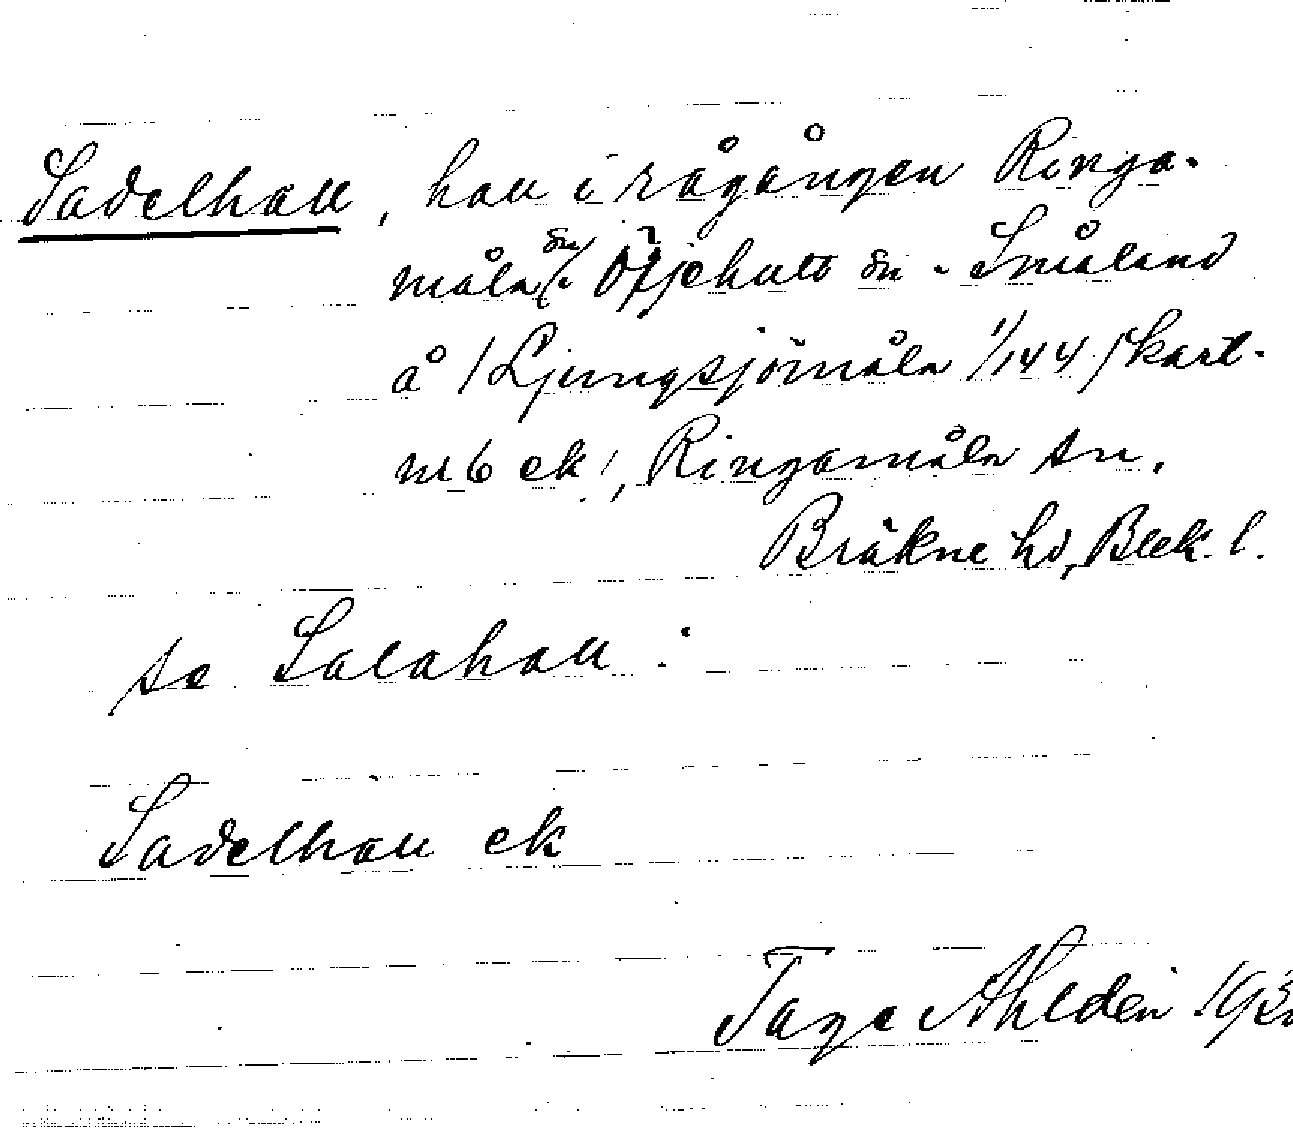 Sadelhall, hall i rågången Ringa-
måla sn/. Äljehult sn - Småland
å /Ljungsjömåla 1/144/ Kart-
nr 6 ek/, Ringamåla sn,
Bräkne hd, Blek. l.
se Salahall :
Sadelhall ek
Tage Ahldén